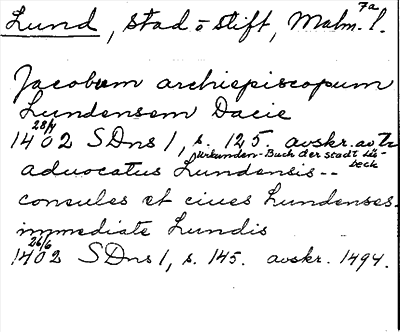 Lund, stad o stift, Malm. l. 7a
Jacobum archiepiscopum
Lundensem Dacie
28/4
1402 SDns 1, s. 125. avskr. av
Urkunden-Buch der stadt Lü-
beck
advocatus Lundensis --
consules et ciues Lundenses.
immediate Lundis
26/6
1402 SDns 1, s. 145. avskr. 1494.